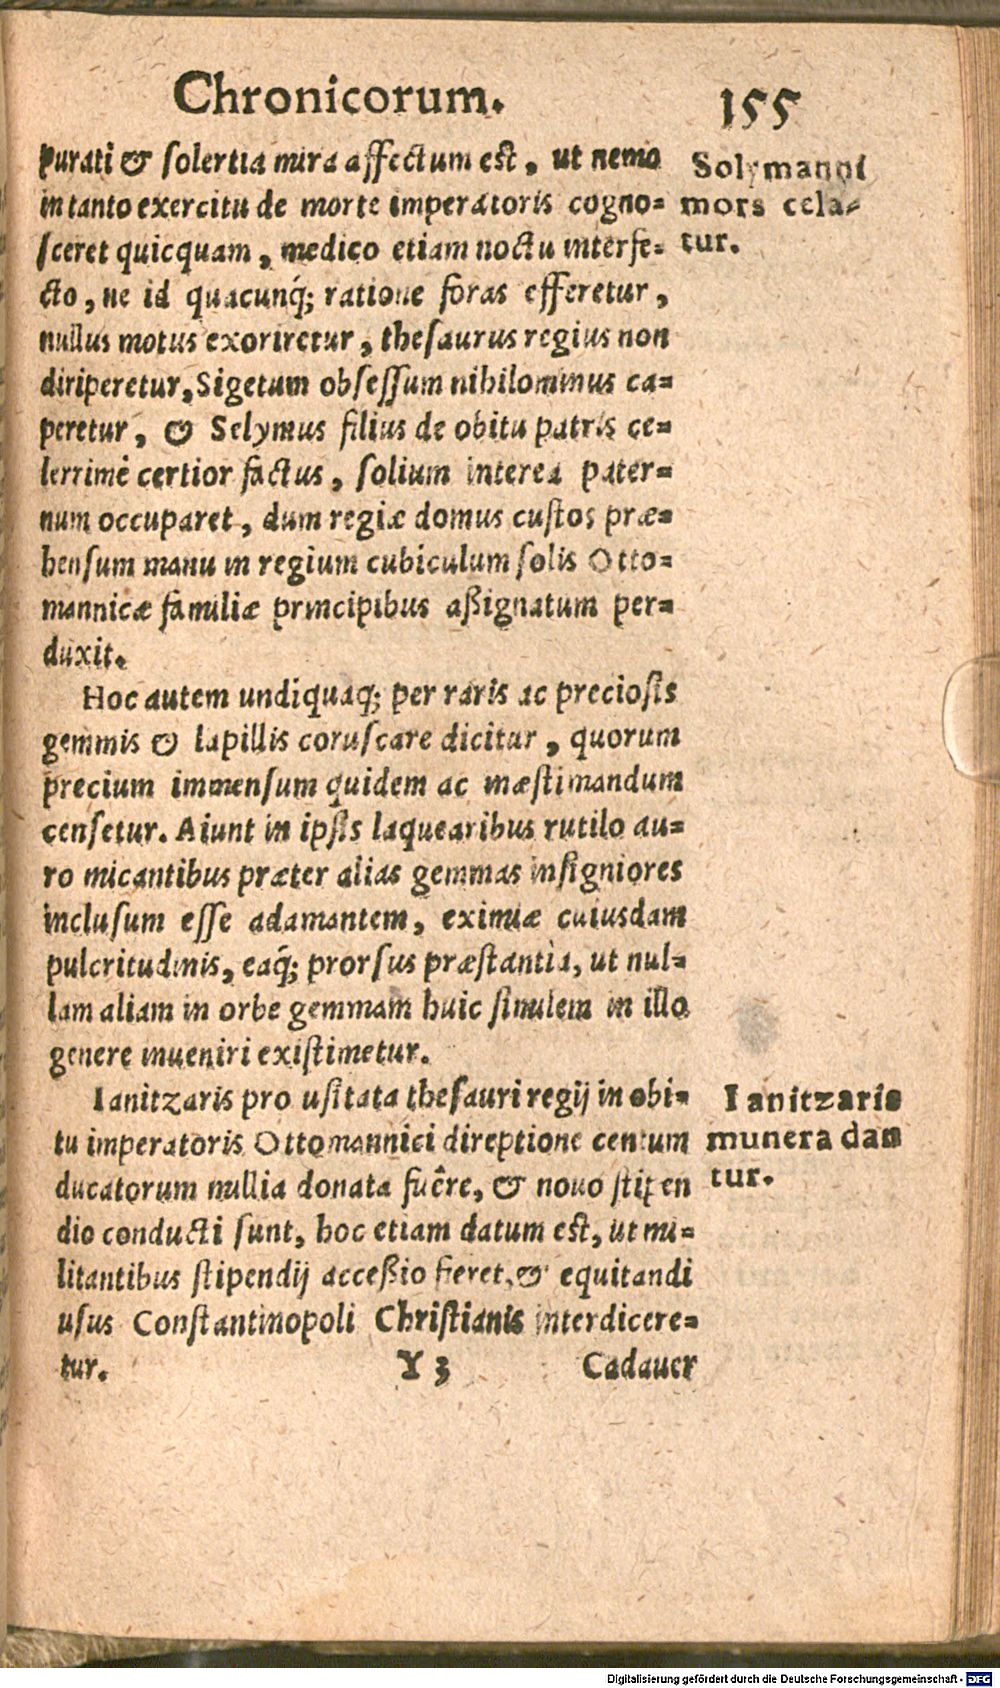 Chronicorum. 155
purati & solertia mira affectum est, ut nemo
in tanto exercitu de morte imperatoris cogno=
sceret quicquam, medico etiam noctu interfe=
cto, ne id quacunq; ratione foras efferetur,
nullus motus exoriretur, thesaurus regius non
diriperetur, Sigetum obsessum nihilominus ca=
peretur, & Selymus filius de obitu patris ce=
lerrimè certior factus, solium interea pater=
num occuparet, dum regiæ domus custos præ=
hensum manu in regium cubiculum solis Otto=
mannicæ familiæ principibus aßignatum per=
duxit.
Hoc autem undiquaq; per raris ac preciosis
gemmis & lapillis coruscare dicitur, quorum
precium immensum quidem ac inæstimandum
censetur. Aiunt in ipsis laquearibus rutilo au=
ro micantibus præter alias gemmas insigniores
inclusum esse adamantem, eximiæ cuiusdam
pulcritudinis, eaq́; prorsus præstantia, ut nul=
lam aliam in orbe gemmam huic similem in illo
genere inueniri existimetur.
Ianitzaris pro usitata thesauri regij in obi=
tu imperatoris Ottomannici direptione centum
ducatorum millia donata fuêre, & nouo stipen
dio conducti sunt, hoc etiam datum est, ut mi=
litantibus stipendij acceßio fieret, & equitandi
usus Constantinopoli Christianis interdicere=
tur. Y 3 Cadauer
Solymanni
mors cela-
tur.
Ianitzaris
munera dan
tur.
Digitalisierung gefördert durch die Deutsche Forschungsgemeinschaft - DFG